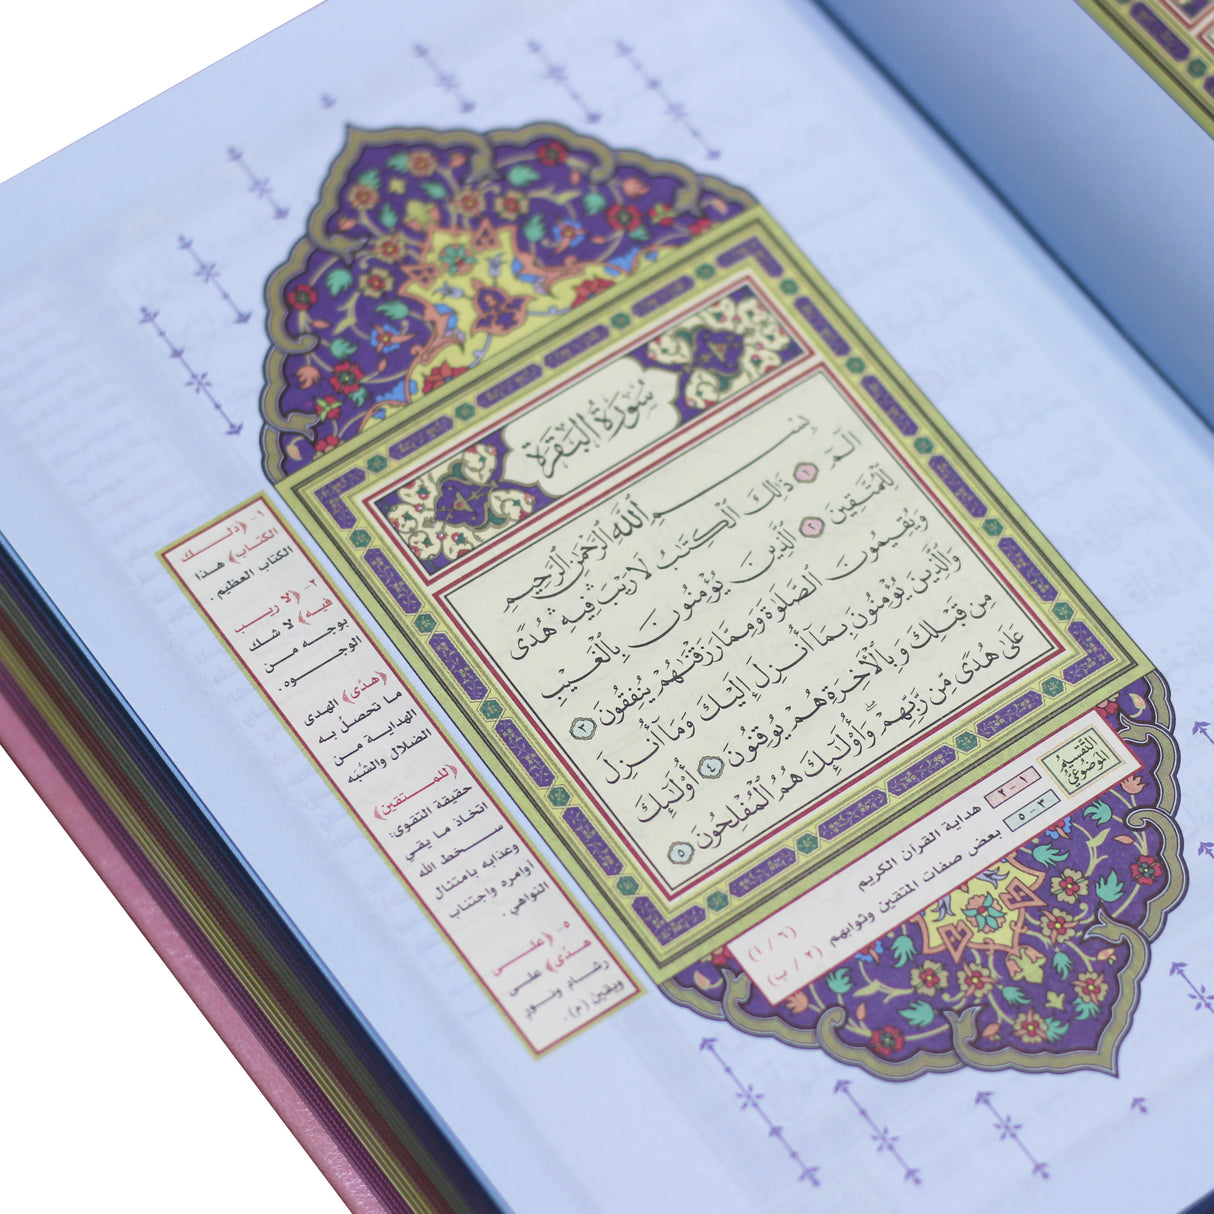 سُورَةُ البَقَرَةِ
بِسْمِ ٱللَّهِ ٱلرَّحْمَٰنِ ٱلرَّحِيمِ
الٓمٓ ١ ذَٰلِكَ ٱلْكِتَٰبُ لَا رَيْبَ فِيهِ هُدًى
لِّلْمُتَّقِينَ ٢ ٱلَّذِينَ يُؤْمِنُونَ بِٱلْغَيْبِ
وَيُقِيمُونَ ٱلصَّلَوٰةَ وَمِمَّا رَزَقْنَٰهُمْ يُنفِقُونَ ٣
وَٱلَّذِينَ يُؤْمِنُونَ بِمَآ أُنزِلَ إِلَيْكَ وَمَآ أُنزِلَ
مِن قَبْلِكَ وَبِٱلْءَاخِرَةِ هُمْ يُوقِنُونَ ٤ أُو۟لَٰٓئِكَ
عَلَىٰ هُدًى مِّن رَّبِّهِمْ ۖ وَأُو۟لَٰٓئِكَ هُمُ ٱلْمُفْلِحُونَ ٥
١- ﴿ذلك
الكتاب﴾ هذا
الكتاب العظيم.
٢- ﴿لا ريب
فيه﴾ لا شك
بوجه من
الوجوه.
﴿هدًى﴾ الهدى
ما تحصل به
الهداية من
الضلال والشُّبَه
﴿للمتقين﴾
حقيقة التقوى:
اتخاذ ما يقي
سخط الله
وعذابه بامتثال
أوامره واجتناب
النواهي.
٥- ﴿على
هدًى﴾ على
رشاد ونور
ويقين (م).
التقسيم
الموضوعي
١-٢ هداية القرآن الكريم (٦ / أ)
٣-٥ بعض صفات المتقين وثوابهم (٢ / ب)